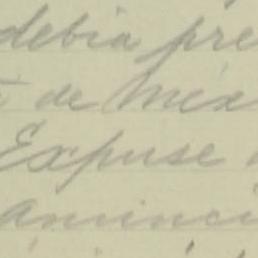 debia pre
de Méx
Expuse
anunci